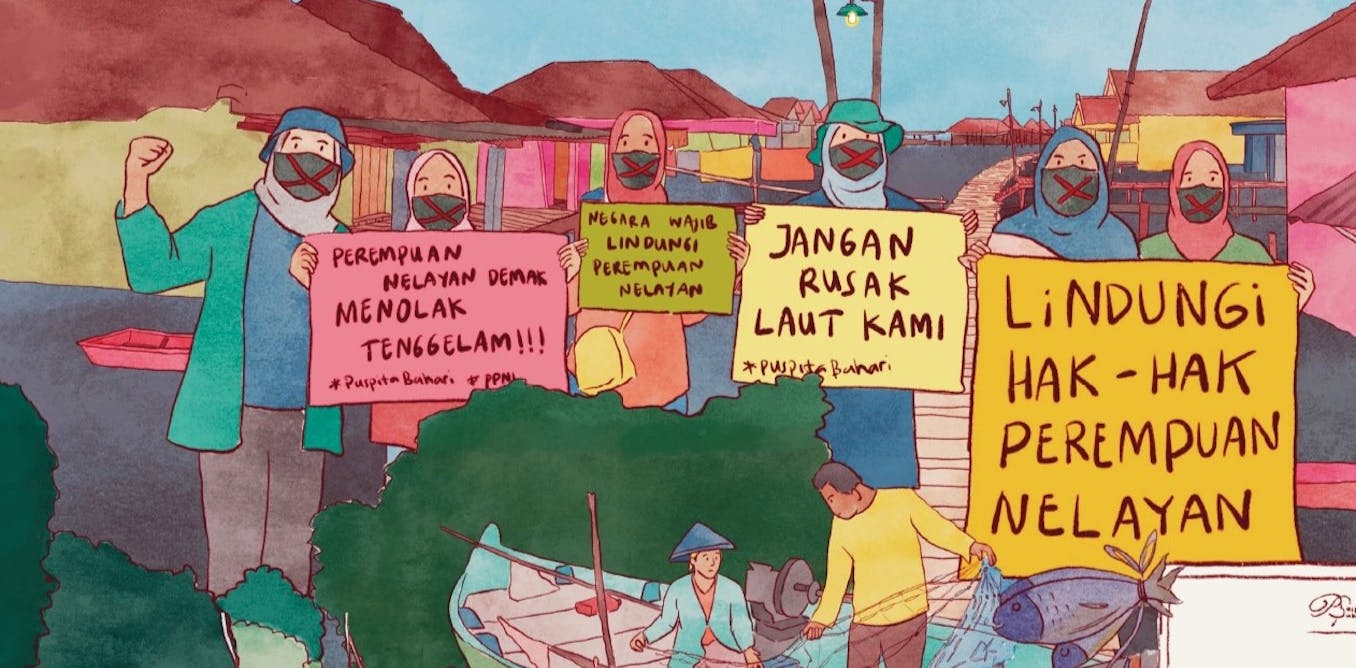 PEREMPUAN
NELAYAN DEMAK
MENOLAK
TENGGELAM!!!
*Puspita Bahari # PPNI
NEGARA WAJIB
LINDUNGI
PEREMPUAN
NELAYAN
JANGAN
RUSAK
LAUT KAMI
*Puspita Bahari
LiNDUNGi
HAK-HAK
PEREMPUAN
NELAYAN